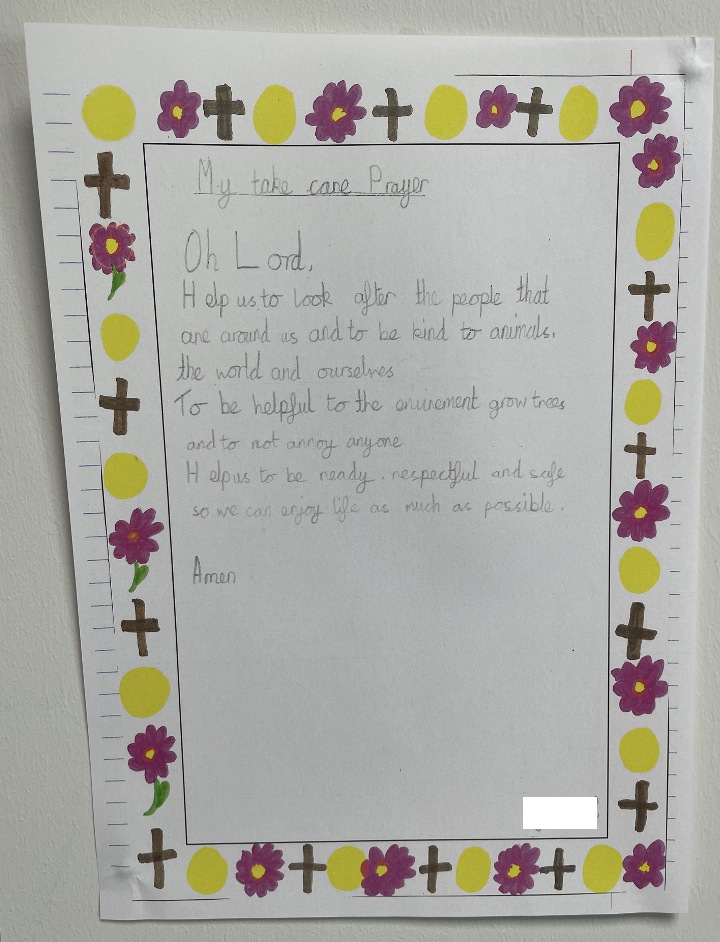 My take care Prayer
Oh Lord,
Help us to look after the people that
are around us and to be kind to animals.
the world and ourselves
To be helpful to the enuirement grow trees
and to not annoy anyone
Help us to be ready. respectful and safe
so we can enjoy life as much as possible.
Amen